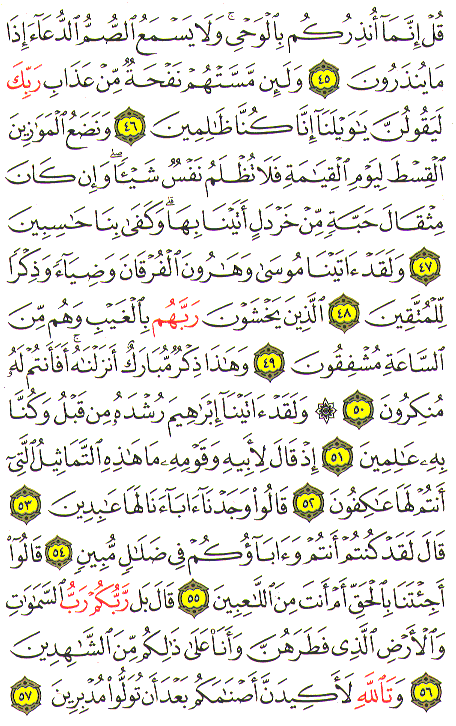 قُلْ إِنَّمَآ أُنذِرُكُم بِالْوَحْىِ ۚ وَلَا يَسْمَعُ الصُّمُّ الدُّعَآءَ إِذَا
مَا يُنذَرُونَ ٤٥ وَلَئِن مَّسَّتْهُمْ نَفْحَةٌ مِّنْ عَذَابِ رَبِّكَ
لَيَقُولُنَّ يَٰوَيْلَنَآ إِنَّا كُنَّا ظَٰلِمِينَ ٤٦ وَنَضَعُ الْمَوَٰزِينَ
الْقِسْطَ لِيَوْمِ الْقِيَٰمَةِ فَلَا تُظْلَمُ نَفْسٌ شَيْـًٔا ۖ وَإِن كَانَ
مِثْقَالَ حَبَّةٍ مِّنْ خَرْدَلٍ أَتَيْنَا بِهَا ۗ وَكَفَىٰ بِنَا حَٰسِبِينَ
٤٧ وَلَقَدْ ءَاتَيْنَا مُوسَىٰ وَهَٰرُونَ الْفُرْقَانَ وَضِيَآءً وَذِكْرًا
لِّلْمُتَّقِينَ ٤٨ الَّذِينَ يَخْشَوْنَ رَبَّهُم بِالْغَيْبِ وَهُم مِّنَ
السَّاعَةِ مُشْفِقُونَ ٤٩ وَهَٰذَا ذِكْرٌ مُّبَارَكٌ أَنزَلْنَٰهُ ۚ أَفَأَنتُمْ لَهُۥ
مُنكِرُونَ ٥٠ ۞ وَلَقَدْ ءَاتَيْنَآ إِبْرَٰهِيمَ رُشْدَهُۥ مِن قَبْلُ وَكُنَّا
بِهِۦ عَٰلِمِينَ ٥١ إِذْ قَالَ لِأَبِيهِ وَقَوْمِهِۦ مَا هَٰذِهِ التَّمَاثِيلُ الَّتِىٓ
أَنتُمْ لَهَا عَٰكِفُونَ ٥٢ قَالُوا۟ وَجَدْنَآ ءَابَآءَنَا لَهَا عَٰبِدِينَ ٥٣
قَالَ لَقَدْ كُنتُمْ أَنتُمْ وَءَابَآؤُكُمْ فِى ضَلَٰلٍ مُّبِينٍ ٥٤ قَالُوٓا۟
أَجِئْتَنَا بِالْحَقِّ أَمْ أَنتَ مِنَ اللَّٰعِبِينَ ٥٥ قَالَ بَل رَّبُّكُمْ رَبُّ السَّمَٰوَٰتِ
وَالْأَرْضِ الَّذِى فَطَرَهُنَّ وَأَنَا۠ عَلَىٰ ذَٰلِكُم مِّنَ الشَّٰهِدِينَ
٥٦ وَتَاللَّهِ لَأَكِيدَنَّ أَصْنَٰمَكُم بَعْدَ أَن تُوَلُّوا۟ مُدْبِرِينَ ٥٧